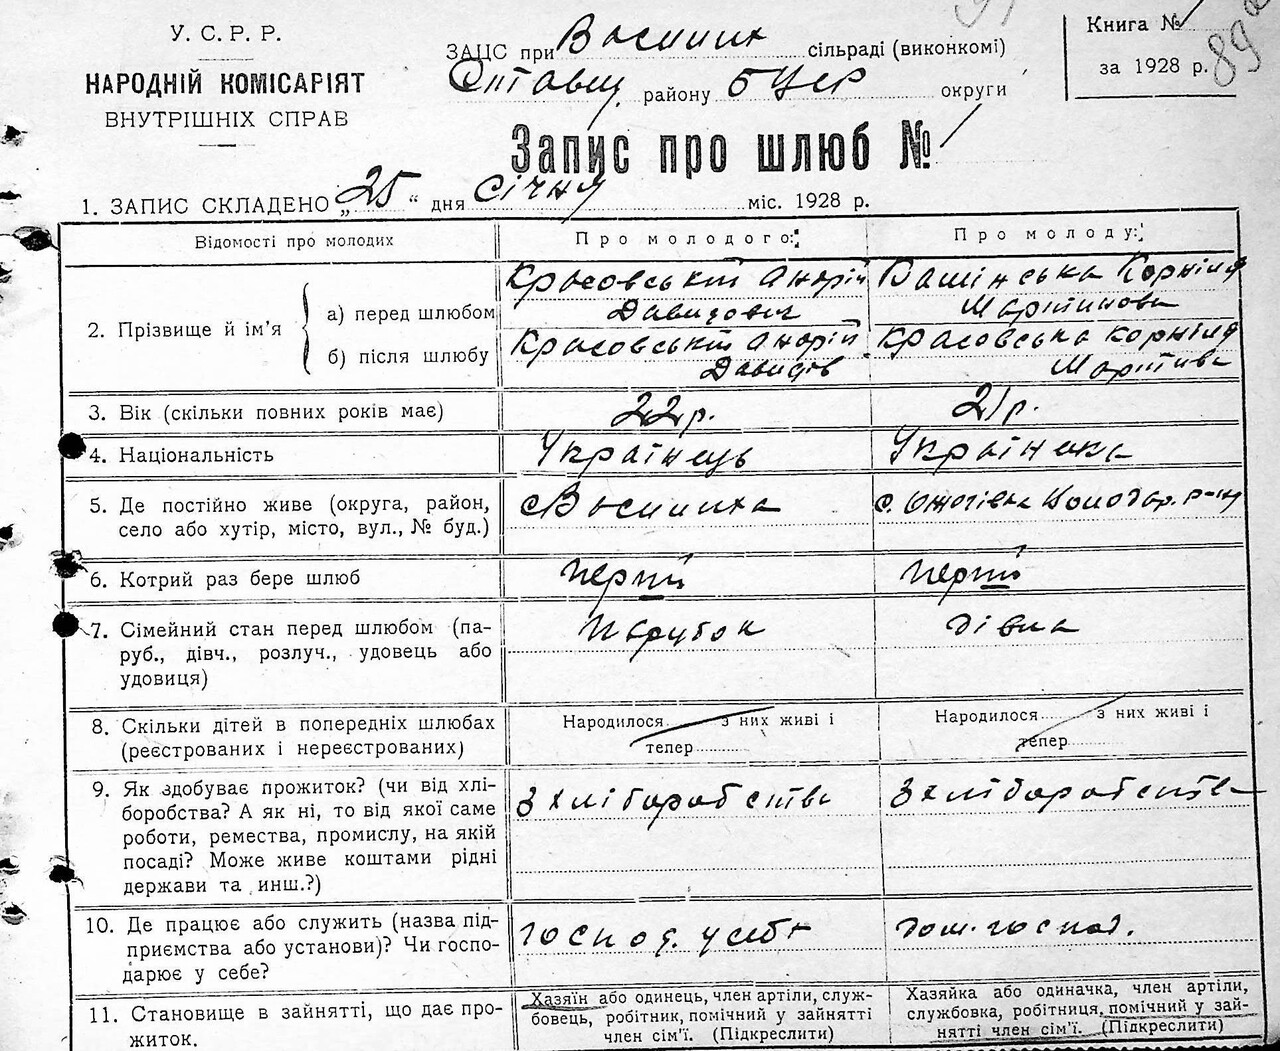 У. С. Р. Р.
НАРОДНІЙ КОМІСАРІЯТ
ВНУТРІШНІХ СПРАВ
ЗАЦС при сільраді (виконкомі)
району округи
Книга №
за 1928 р.
89
Запис про шлюб № 1
1. ЗАПИС СКЛАДЕНО „25“ дня січня міс. 1928 р.
Відомості про молодих
Про молодого:
Про молоду:
2. Прізвище й ім'я
а) перед шлюбом
Красовський Андрій
Давидович
Корніля
Мартинова
б) після шлюбу
Красовський Андрій
Давидів
Красовська Корніля
3. Вік (скільки повних років має)
22 р.
21 р.
4. Національність
Українець
Українка
5. Де постійно живе (округа, район,
село або хутір, місто, вул., № буд.)
с.
с. Ожогівка р-ну
6. Котрий раз бере шлюб
перший
перший
7. Сімейний стан перед шлюбом (па-
руб., дівч., розлуч., удовець або
удовиця)
парубок
дівка
8. Скільки дітей в попередніх шлюбах
(реєстрованих і нереєстрованих)
Народилося з них живі і
тепер
Народилося з них живі і
тепер
9. Як здобуває прожиток? (чи від хлі-
боробства? А як ні, то від якої саме
роботи, ремества, промислу, на якій
посаді? Може живе коштами рідні
держави та инш.?)
З хліборобства
З хліборобства
10. Де працює або служить (назва під-
приємства або установи)? Чи госпо-
дарює у себе?
господ. у себе
дом. господ.
11. Становище в зайнятті, що дає про-
житок.
Хазяїн або одинець, член артіли, служ-
бовець, робітник, помічний у зайнятті
член сім'ї. (Підкреслити)
Хазяйка або одиначка, член артіли,
службовка, робітниця, помічний у зай-
нятті член сім'ї. (Підкреслити)